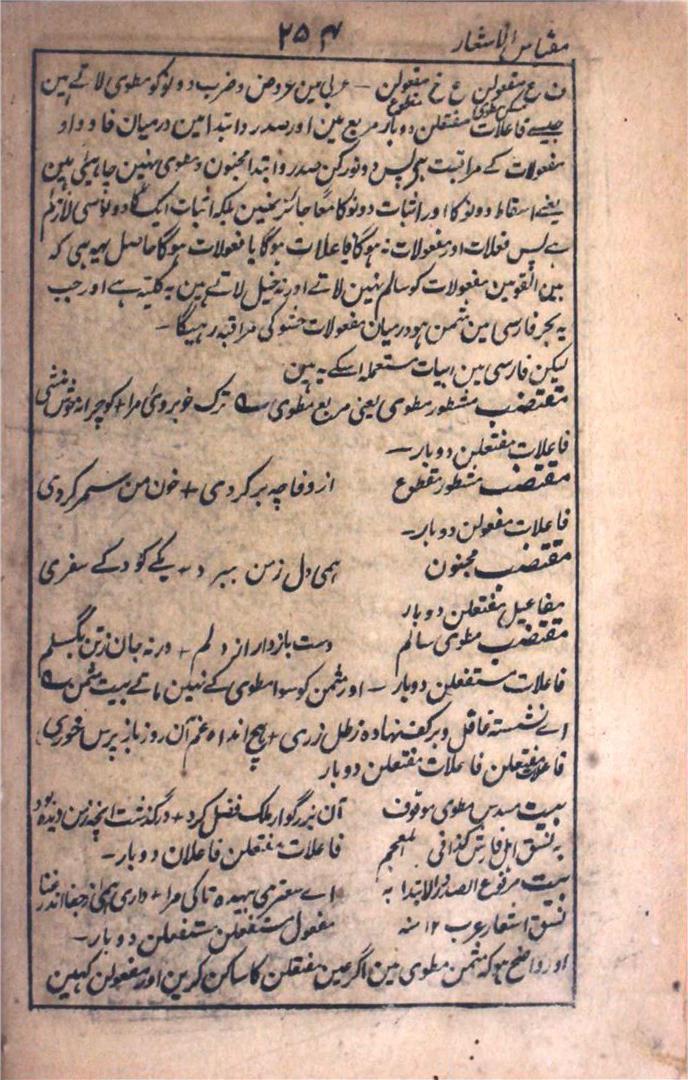 مقیاس الاشعار
۲۵۴
ف ع مفعولن ع خ مفعولن – عربی مین عروض و ضرب دونو کو مطوی لاتے ہین
جیسے فاعلات مفتعلن دوبار مربع مین اور صدر و ابتدا مین درمیان فا و واو
مفعولات کے مراقبت ہی پس دونو رکن صدر و ابتدا مخبون و مطوی نہین چاہیئے ہین
یعنے اسقاط دونو کا اور اثبات دونو کا معا جائز نہین بلکہ اثبات ایک کا دونو سی لازم
ہے پس فعولات اور مفعولات نہ ہوگا فاعلات ہوگا یا مفعولات ہوگا حاصل یہہ ہی کہ
بین القومین مفعولات کو سالم نہین لاتے اور نہ خبل لاتے ہین یہ کلیتہ ہے اور جب
یہ بحر فارسی مین مثمن ہو درمیان مفعولات حشو کی مراقبہ رہیگا –
لیکن فارسی مین ابیات مستعملہ اسکے یہ ہین
مقتضب مشطور مطوی یعنی مربع مطوی ترک خوبروی مرا + کو چرا نہ خوش منشی
فاعلات مفتعلن دوبار –
مقتضب مشطور مقطوع از وفا چہ بر کردی + خون من بسر کردی
فاعلات مفعولن دوبار –
مقتضب مخبون ہمی دل ز من ببرد یکے کودکے سفری
مفاعیل مفتعلن دوبار
مقتضب مطوی سالم دست باز دار از دلم + ورنہ جان ز تن بگسلم
فاعلات مستفعلن دوبار – اور مثمن کو سوا مطوی کے نہین لاتے بیت مثمن
اے نشستہ غافل و بر کف نہادہ رطل زری + ہیچ اندہ غم آن روز باز پرس خوری
فاعلات مفتعلن فاعلات مفتعلن دوبار
بیت مسدس مطوی موقوف آن بزرگوار ملک فضل کرد + درگذشت انچہ ز من دیدہ بود
بہ نسق اہل فارس کذا فی المعجم فاعلات مفتعلن فاعلان دوبار –
بیت مرفوع الصدر و الابتدا بہ اے سفری بیہدہ تا کی مرا + داری ہمی از جفا اندر عنا
نسق اشعار عرب ۱۲ منہ مفعول مستفعلن مستفعلن دوبار –
اور واضح ہو کہ مثمن مطوی مین اگر عین مفتعلن کا ساکن کرین اور مفعولن کہین